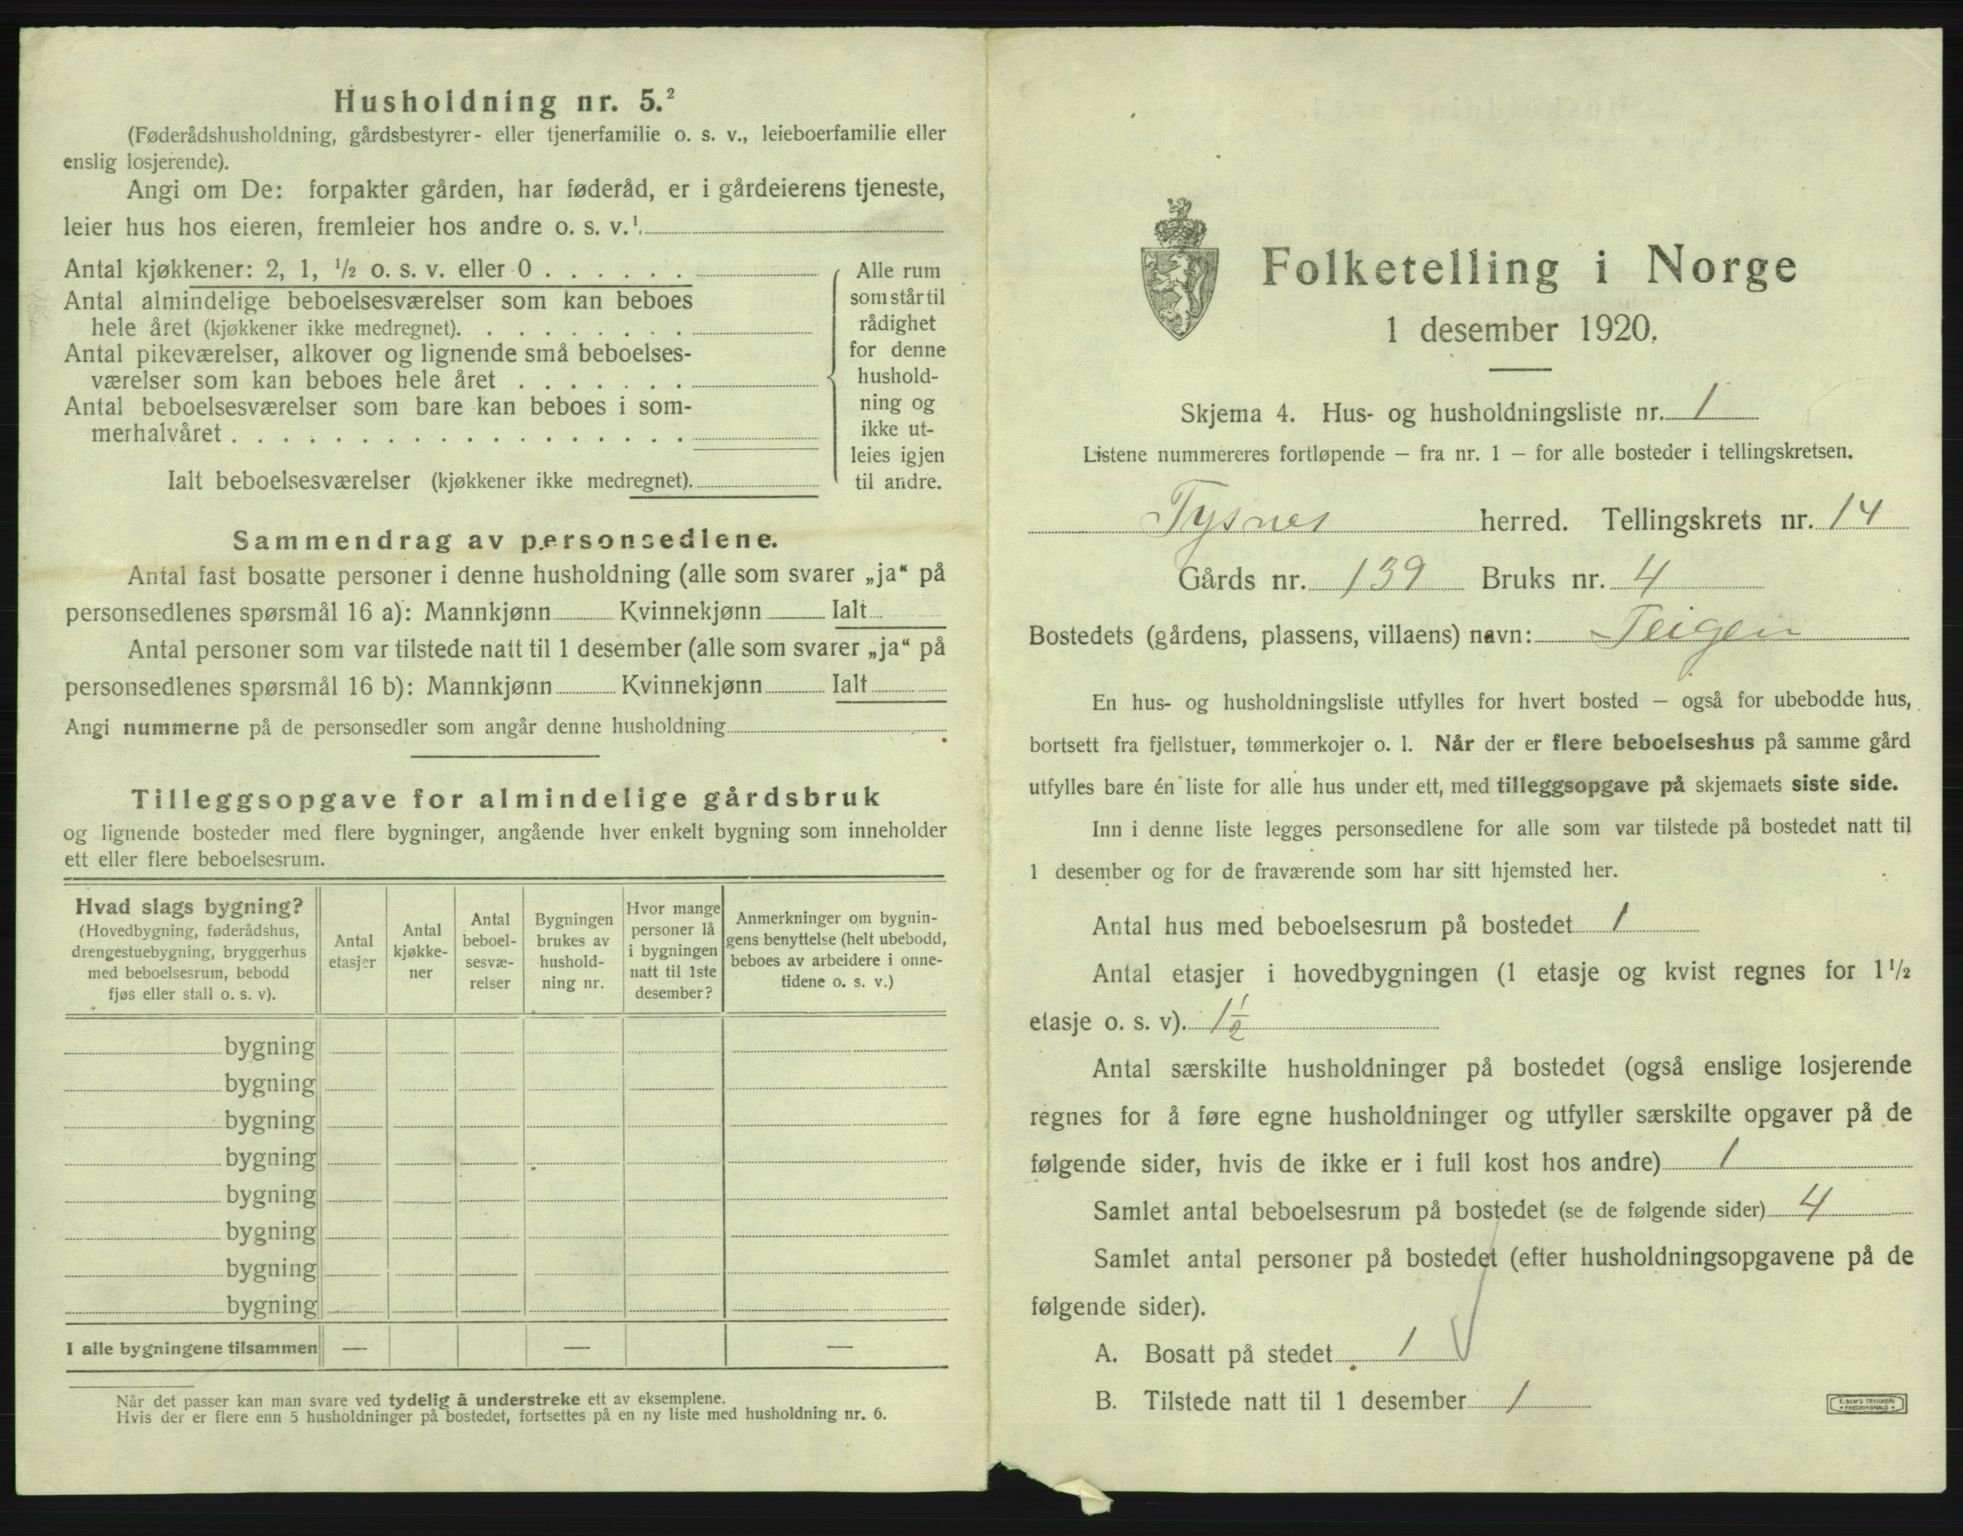 Husholdning nr. 5.²
(Føderådshusholdning, gårdsbestyrer- eller tjenerfamilie o. s. v., leieboerfamilie eller
enslig losjerende).
Angi om De: forpakter gården, har føderåd, er i gårdeierens tjeneste,
leier hus hos eieren, fremleier hos andre o. s. v.¹
Antal kjøkkener: 2, 1, ½ o. s. v. eller 0 . . . . . .
Antal almindelige beboelsesværelser som kan beboes
hele året (kjøkkener ikke medregnet). . . . . . . . .
Antal pikeværelser, alkover og lignende små beboelses-
værelser som kan beboes hele året . . . . . . .
Antal beboelsesværelser som bare kan beboes i som-
merhalvåret . . . . . . . . . . . . . . . . . .
Ialt beboelsesværelser (kjøkkener ikke medregnet).
Alle rum
som står til
rådighet
for denne
hushold-
ning og
ikke ut-
leies igjen
til andre.
Sammendrag av personsedlene.
Antal fast bosatte personer i denne husholdning (alle som svarer „ja“ på
personsedlenes spørsmål 16 a): Mannkjønn Kvinnekjønn Ialt
Antal personer som var tilstede natt til 1 desember (alle som svarer „ja“ på
personsedlenes spørsmål 16 b): Mannkjønn Kvinnekjønn Ialt
Angi nummerne på de personsedler som angår denne husholdning
Tilleggsopgave for almindelige gårdsbruk
og lignende bosteder med flere bygninger, angående hver enkelt bygning som inneholder
ett eller flere beboelsesrum.
Hvad slags bygning?
(Hovedbygning, føderådshus,
drengestuebygning, bryggerhus
med beboelsesrum, bebodd
fjøs eller stall o. s. v).
Antal
etasjer
Antal
kjøkke-
ner
Antal
beboel-
sesvæ-
relser
Bygningen
brukes av
hushold-
ning nr.
Hvor mange
personer lå
i bygningen
natt til 1ste
desember?
Anmerkninger om bygnin-
gens benyttelse (helt ubebodd,
beboes av arbeidere i onne-
tidene o. s. v.)
bygning
bygning
bygning
bygning
bygning
bygning
bygning
bygning
I alle bygningene tilsammen — — —
Når det passer kan man svare ved tydelig å understreke ett av eksemplene.
Hvis der er flere enn 5 husholdninger på bostedet, fortsettes på en ny liste med husholdning nr. 6.
Folketelling i Norge
1 desember 1920.
Skjema 4. Hus- og husholdningsliste nr. 1
Listene nummereres fortløpende – fra nr. 1 – for alle bosteder i tellingskretsen.
Tysnes herred. Tellingskrets nr. 14
Gårds nr. 139 Bruks nr. 4
Bostedets (gårdens, plassens, villaens) navn: Teigen
En hus- og husholdningsliste utfylles for hvert bosted – også for ubebodde hus,
bortsett fra fjellstuer, tømmerkojer o. l. Når der er flere beboelseshus på samme gård
utfylles bare én liste for alle hus under ett, med tilleggsopgave på skjemaets siste side.
Inn i denne liste legges personsedlene for alle som var tilstede på bostedet natt til
1 desember og for de fraværende som har sitt hjemsted her.
Antal hus med beboelsesrum på bostedet 1
Antal etasjer i hovedbygningen (1 etasje og kvist regnes for 1½
etasje o. s. v). 1½
Antal særskilte husholdninger på bostedet (også enslige losjerende
regnes for å føre egne husholdninger og utfyller særskilte opgaver på de
følgende sider, hvis de ikke er i full kost hos andre) 1
Samlet antal beboelsesrum på bostedet (se de følgende sider) 4
Samlet antal personer på bostedet (efter husholdningsopgavene på de
følgende sider).
A. Bosatt på stedet 1
B. Tilstede natt til 1 desember 1
E. SEM'S TRYKKERI
• FREDRIKSHALD •